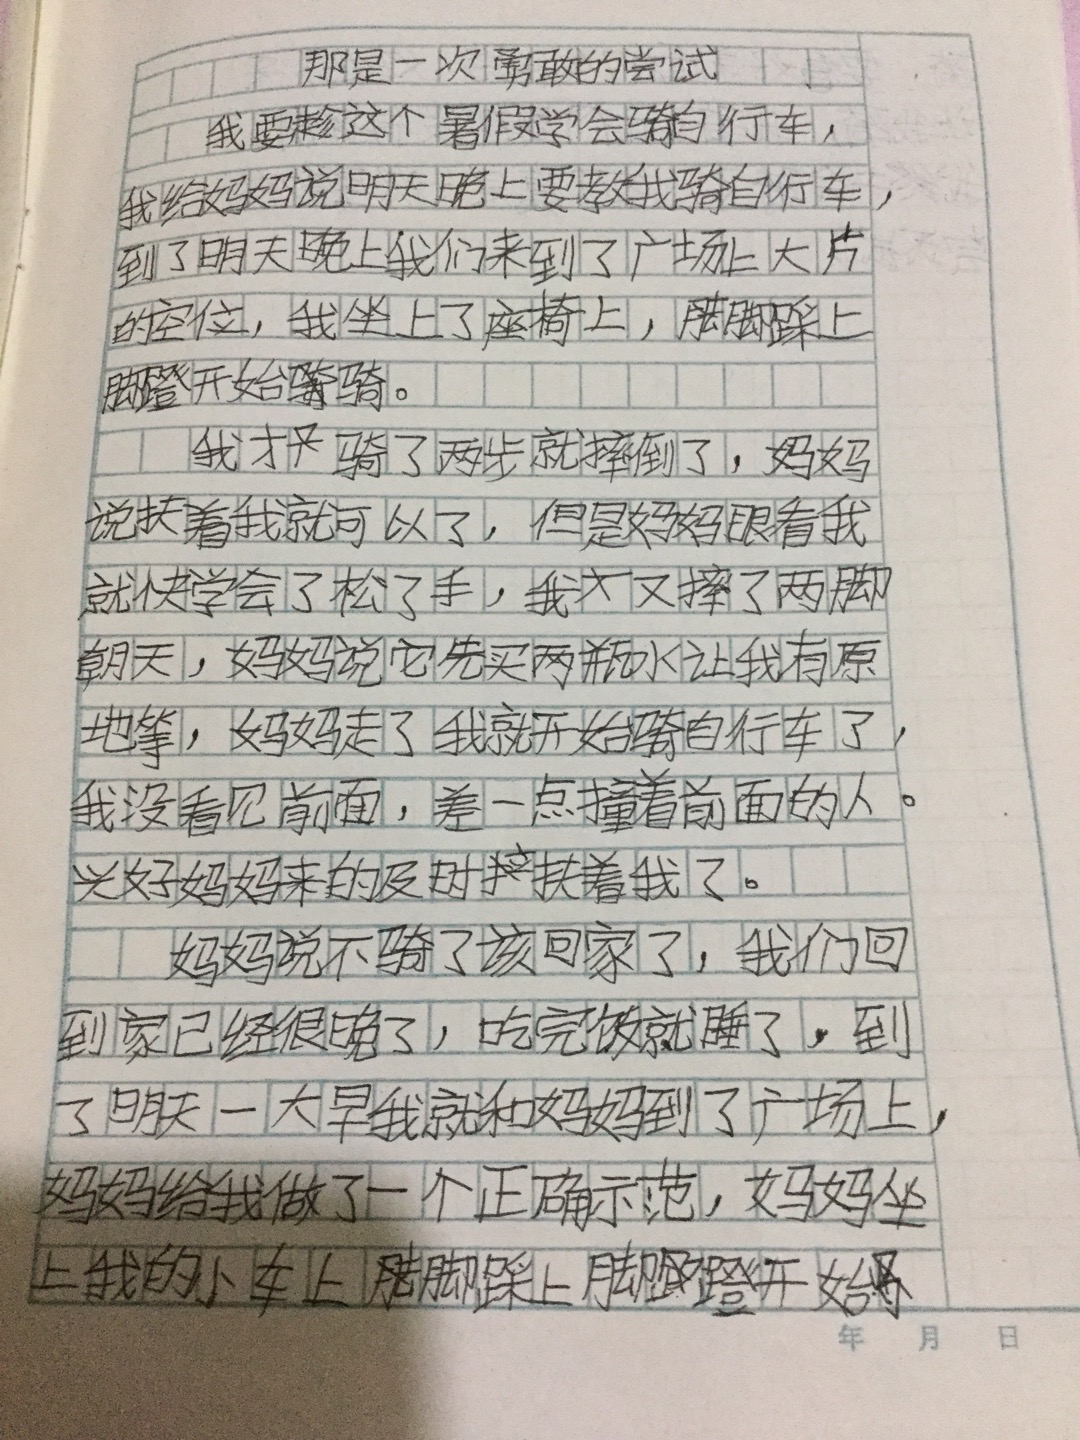 那是一次勇敢的尝试
我要趁这个暑假学会骑自行车，
我给妈妈说明天晚上要教我骑自行车，
到了明天晚上我们来到了广场上大片
的空位，我坐上了座椅上，脚踩上
脚蹬开始骑。
我才骑了两步就摔倒了，妈妈
说扶着我就可以了，但是妈妈眼看我
就快学会了松了手，我又摔了两脚
朝天，妈妈说它先买两瓶水让我有原
地等，妈妈走了我就开始骑自行车了，
我没看见前面，差一点撞着前面的人。
兴好妈妈来的及时扶着我了。
妈妈说不骑了该回家了，我们回
到家已经很晚了，吃完饭就睡了，到
了明天一大早我就和妈妈到了广场上，
妈妈给我做了一个正确示范，妈妈坐
上我的小车上脚踩上脚蹬开始
年 月 日